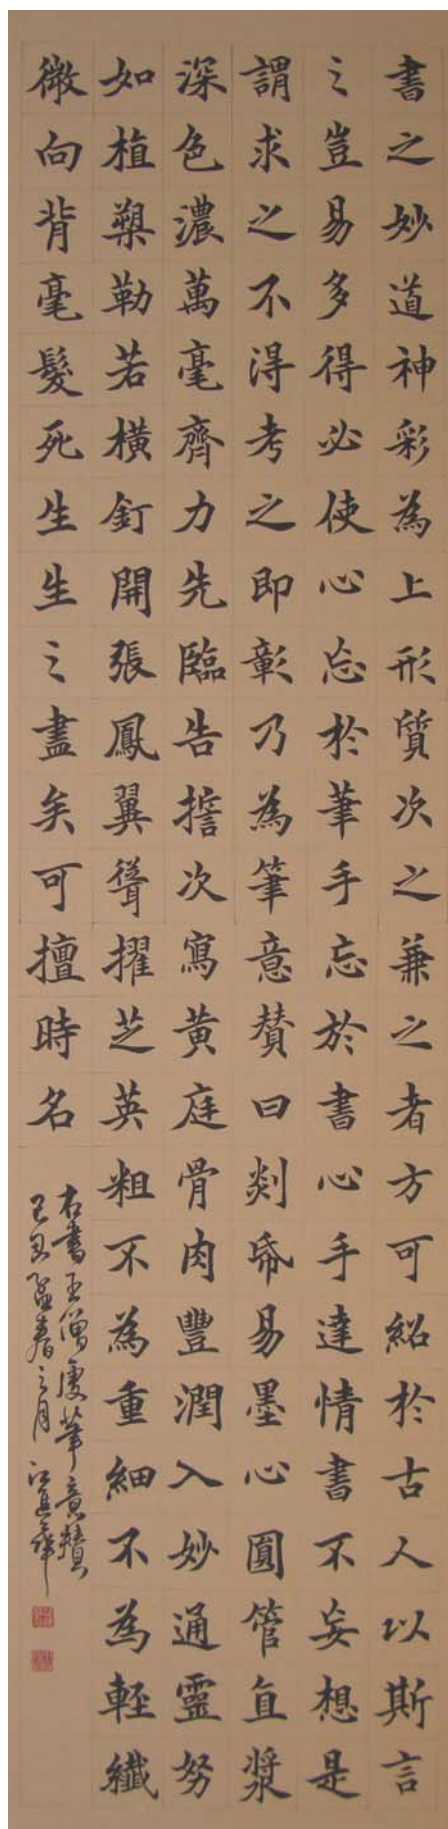 書之妙道神彩為上形質次之兼之者方可紹於古人以斯言
之豈易多得必使心忘於筆手忘於書心手達情書不妄想是
謂求之不得考之即彰乃為筆意贊曰剡帋易墨心圓管直漿
深色濃萬毫齊力先臨告誓次寫黃庭骨肉豐潤入妙通靈努
如植槊勒若橫釘開張鳳翼聳擢芝英粗不為重細不為輕纖
微向背毫髮死生生之盡矣可擅時名
右書王僧虔筆意贊
己丑孟春之月江